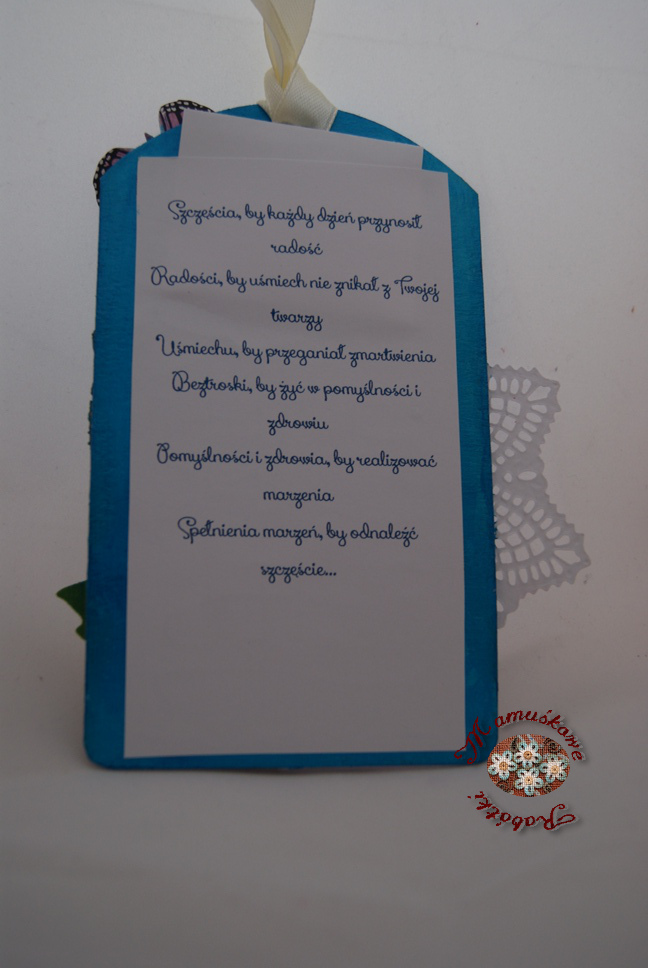 Szczęścia, by każdy dzień przynosił
radość
Radości, by uśmiech nie znikał z Twojej
twarzy
Uśmiechu, by przeganiał zmartwienia
Beztroski, by żyć w pomyślności i
zdrowiu
Pomyślności i zdrowia, by realizować
marzenia
Spełnienia marzeń, by odnaleźć
szczęście...
Mamuśkowe
Robótki